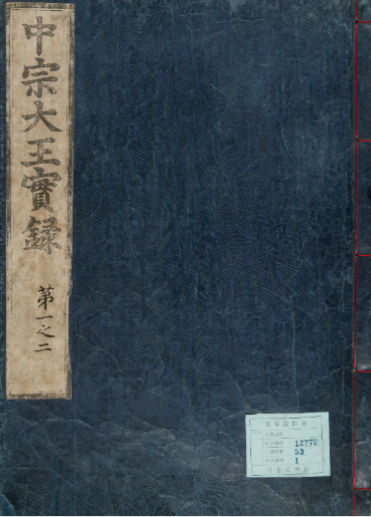 中宗大王實錄
第一之二
12770
53
1